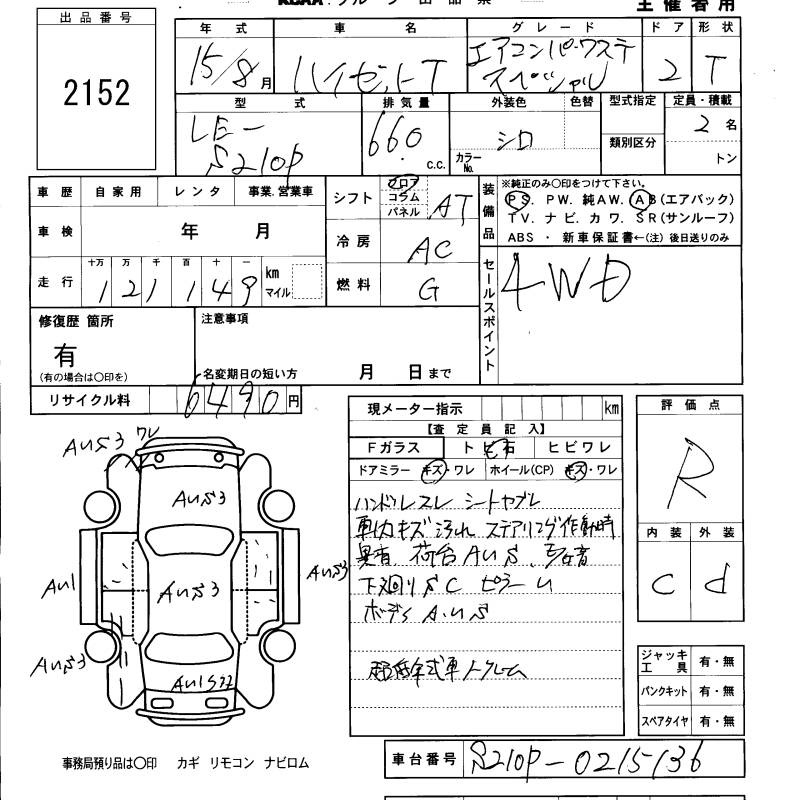 出品番号
2152
主催者用
年式 車名 グレード ドア 形状
15/8月 ハイゼットT エアコンパワステ スペシャル 2 T
型式 排気量 外装色 色替 型式指定 定員・積載
LE-S210P 660 c.c. シロ カラーNo. 類別区分 2名 トン
車歴 自家用 レンタ 事業.営業車
シフト フロア コラム パネル AT
装備品 ※純正のみ〇印をつけて下さい。
PS. PW. 純AW. AB(エアバック)
TV. ナビ. カワ. SR(サンルーフ)
ABS・新車保証書←(注) 後日送りのみ
車検 年 月
冷房 AC
走行 十万 万 千 百 十 一 km マイル
121149
燃料 G
セールスポイント 4WD
修復歴 箇所 注意事項
有
(有の場合は〇印を) 名変期日の短い方 月 日まで
リサイクル料 6490円
現メーター指示 km
【査定員記入】
Fガラス ト ビ 石 ヒビワレ
ドアミラー キズ・ワレ ホイール(CP) キズ・ワレ
ハンドルスレ シートヤブレ
キズ 汚れ ステアリング作動時
異音 荷台AUS
下廻りSC ピラーU
ボディAUS
評価点
R
内装 外装
C d
AUS3 ワレ
AUS3
AU1
AUS3
AUS3
AUS3
AU1S
ジャッキ工具 有・無
パンクキット 有・無
スペアタイヤ 有・無
事務局預り品は〇印 カギ リモコン ナビロム
車台番号 S210P-0215136